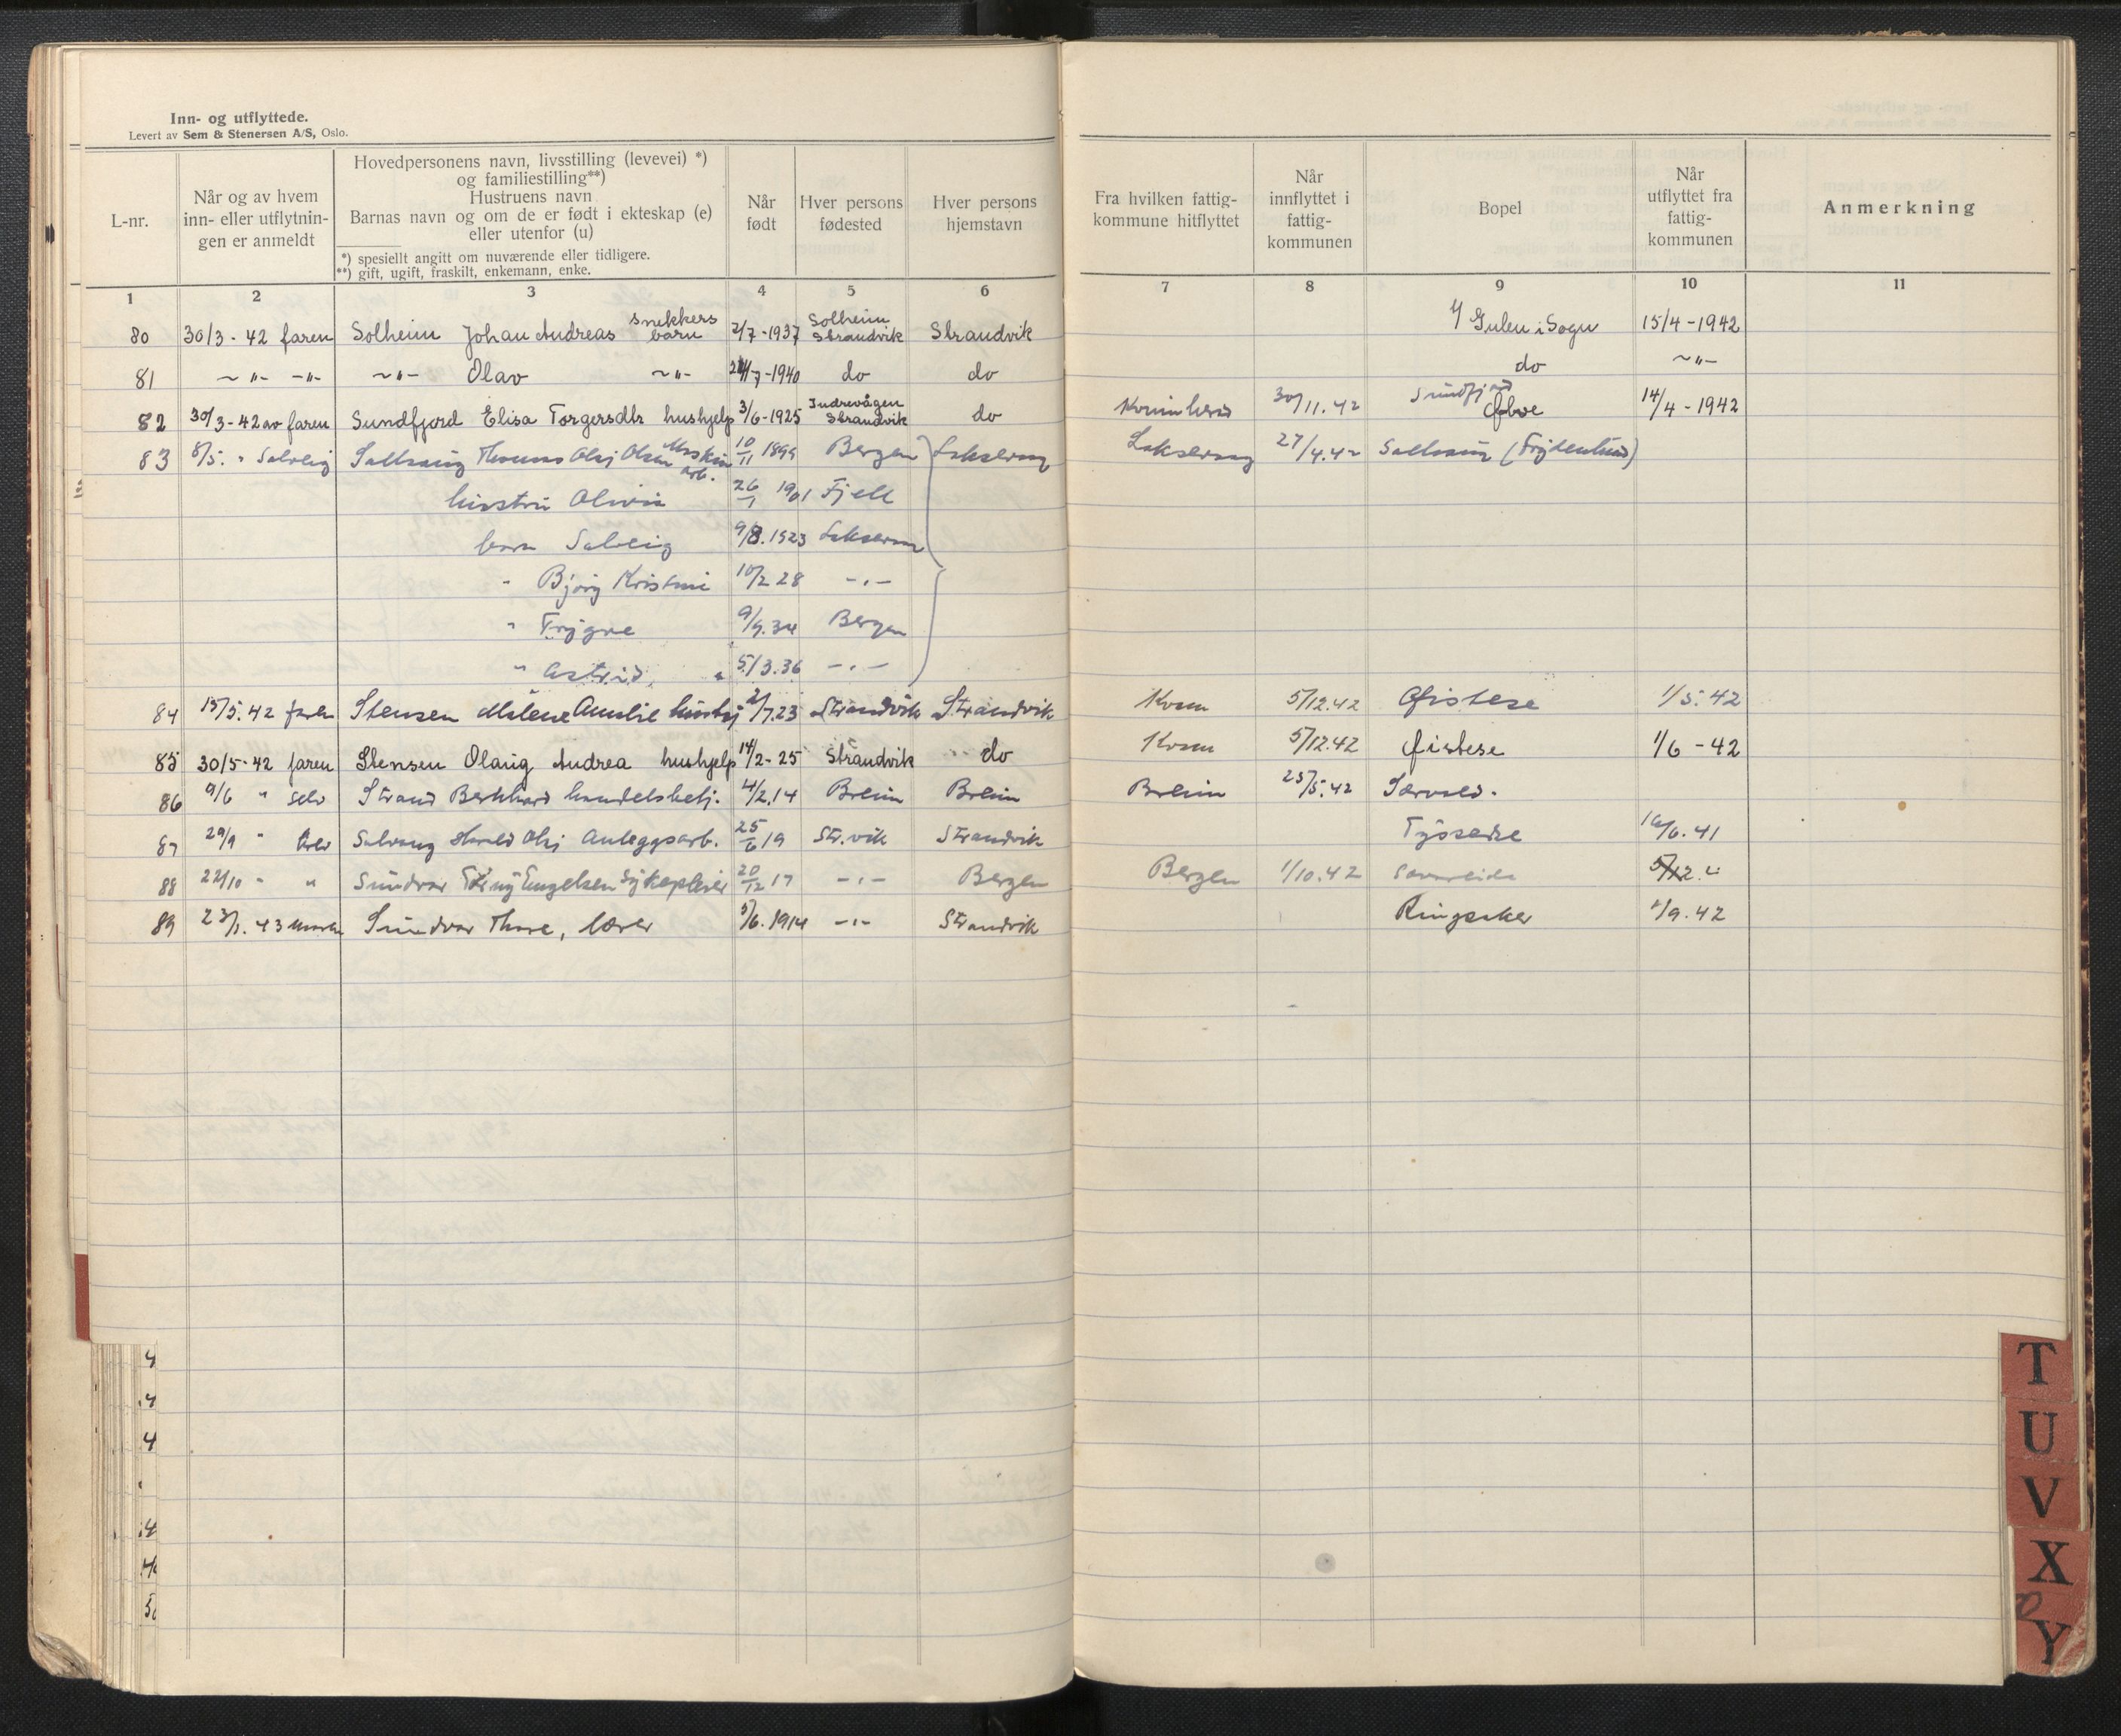 Inn- og utflyttede.
Levert av Sem & Stenersen A/S, Oslo.
L-nr.
Når og av hvem
inn- eller utflytnin-
gen er anmeldt
Hovedpersonens navn, livsstilling (levevei) *)
og familiestilling**)
Hustruens navn
Barnas navn og om de er født i ekteskap (e)
eller utenfor (u)
*) spesiellt angitt om nuværende eller tidligere.
**) gift, ugift, fraskilt, enkemann, enke.
Når
født
Hver persons
fødested
Hver persons
hjemstavn
Fra hvilken fattig-
kommune hitflyttet
Når
innflyttet i
fattig-
kommunen
Bopel
Når
utflyttet fra
fattig-
kommunen
Anmerkning
1 2 3 4 5 6 7 8 9 10 11
80 30/3 - 42 faren Solheim Johan Andreas snekkers barn 2/7-1937 Solheim Strandvik Strandvik Gulen i Sogn 15/4-1942
81 ~ " - -"- ~"- Olav ~"- /7-1940 do do do ~"-
82 30/3-42 av faren Sundfjord Elisa Torgersdtr hushjelp 3/6-1925 Indrevågen Strandvik do 30/11.42 14/4-1942
83 8/5. " Solveig Thomas Olaj Olsen 10/11 1899 Bergen Laksevaag Laksevaag 27/4.42
hustru Olivia 26/1 1901 Fjell
barn Solveig 9/8.1923 Laksevaag
" Bjørg Kristine 10/2 28 -"-
" Trygve 9/9.34 Bergen
" Astrid " 5/3.36 -"-
84 15/5.42 faren Stensen Malene Amalie hushj 2/7.23 Strandvik Strandvik Kvam 5/12.42 Øistese 1/5.42
85 30/5-42 faren Stensen Olaug Andrea hushjelp 14/2-25 Strandvik do Kvam 5/12.42 Øistese 1/6-42
86 9/6 " selv Strand Bernhard handelsbetj. 4/2.14 Breim Breim Breim 25/5.42 Sævareid.
87 29/9 " Harald Olaj Anleggsarb. 25/6 19 Str.vik Strandvik Tyssedal 16/6.41
88 22/10 " " Sundvor Engelsen Sykepleier 20/12 17 -"- Bergen Bergen 1/10.42 Sævareide
89 23/1.43 Sundvor Thore, lærer 5/6.1914 -"- Strandvik Ringsaker /9.42
T
U
V
X
Y